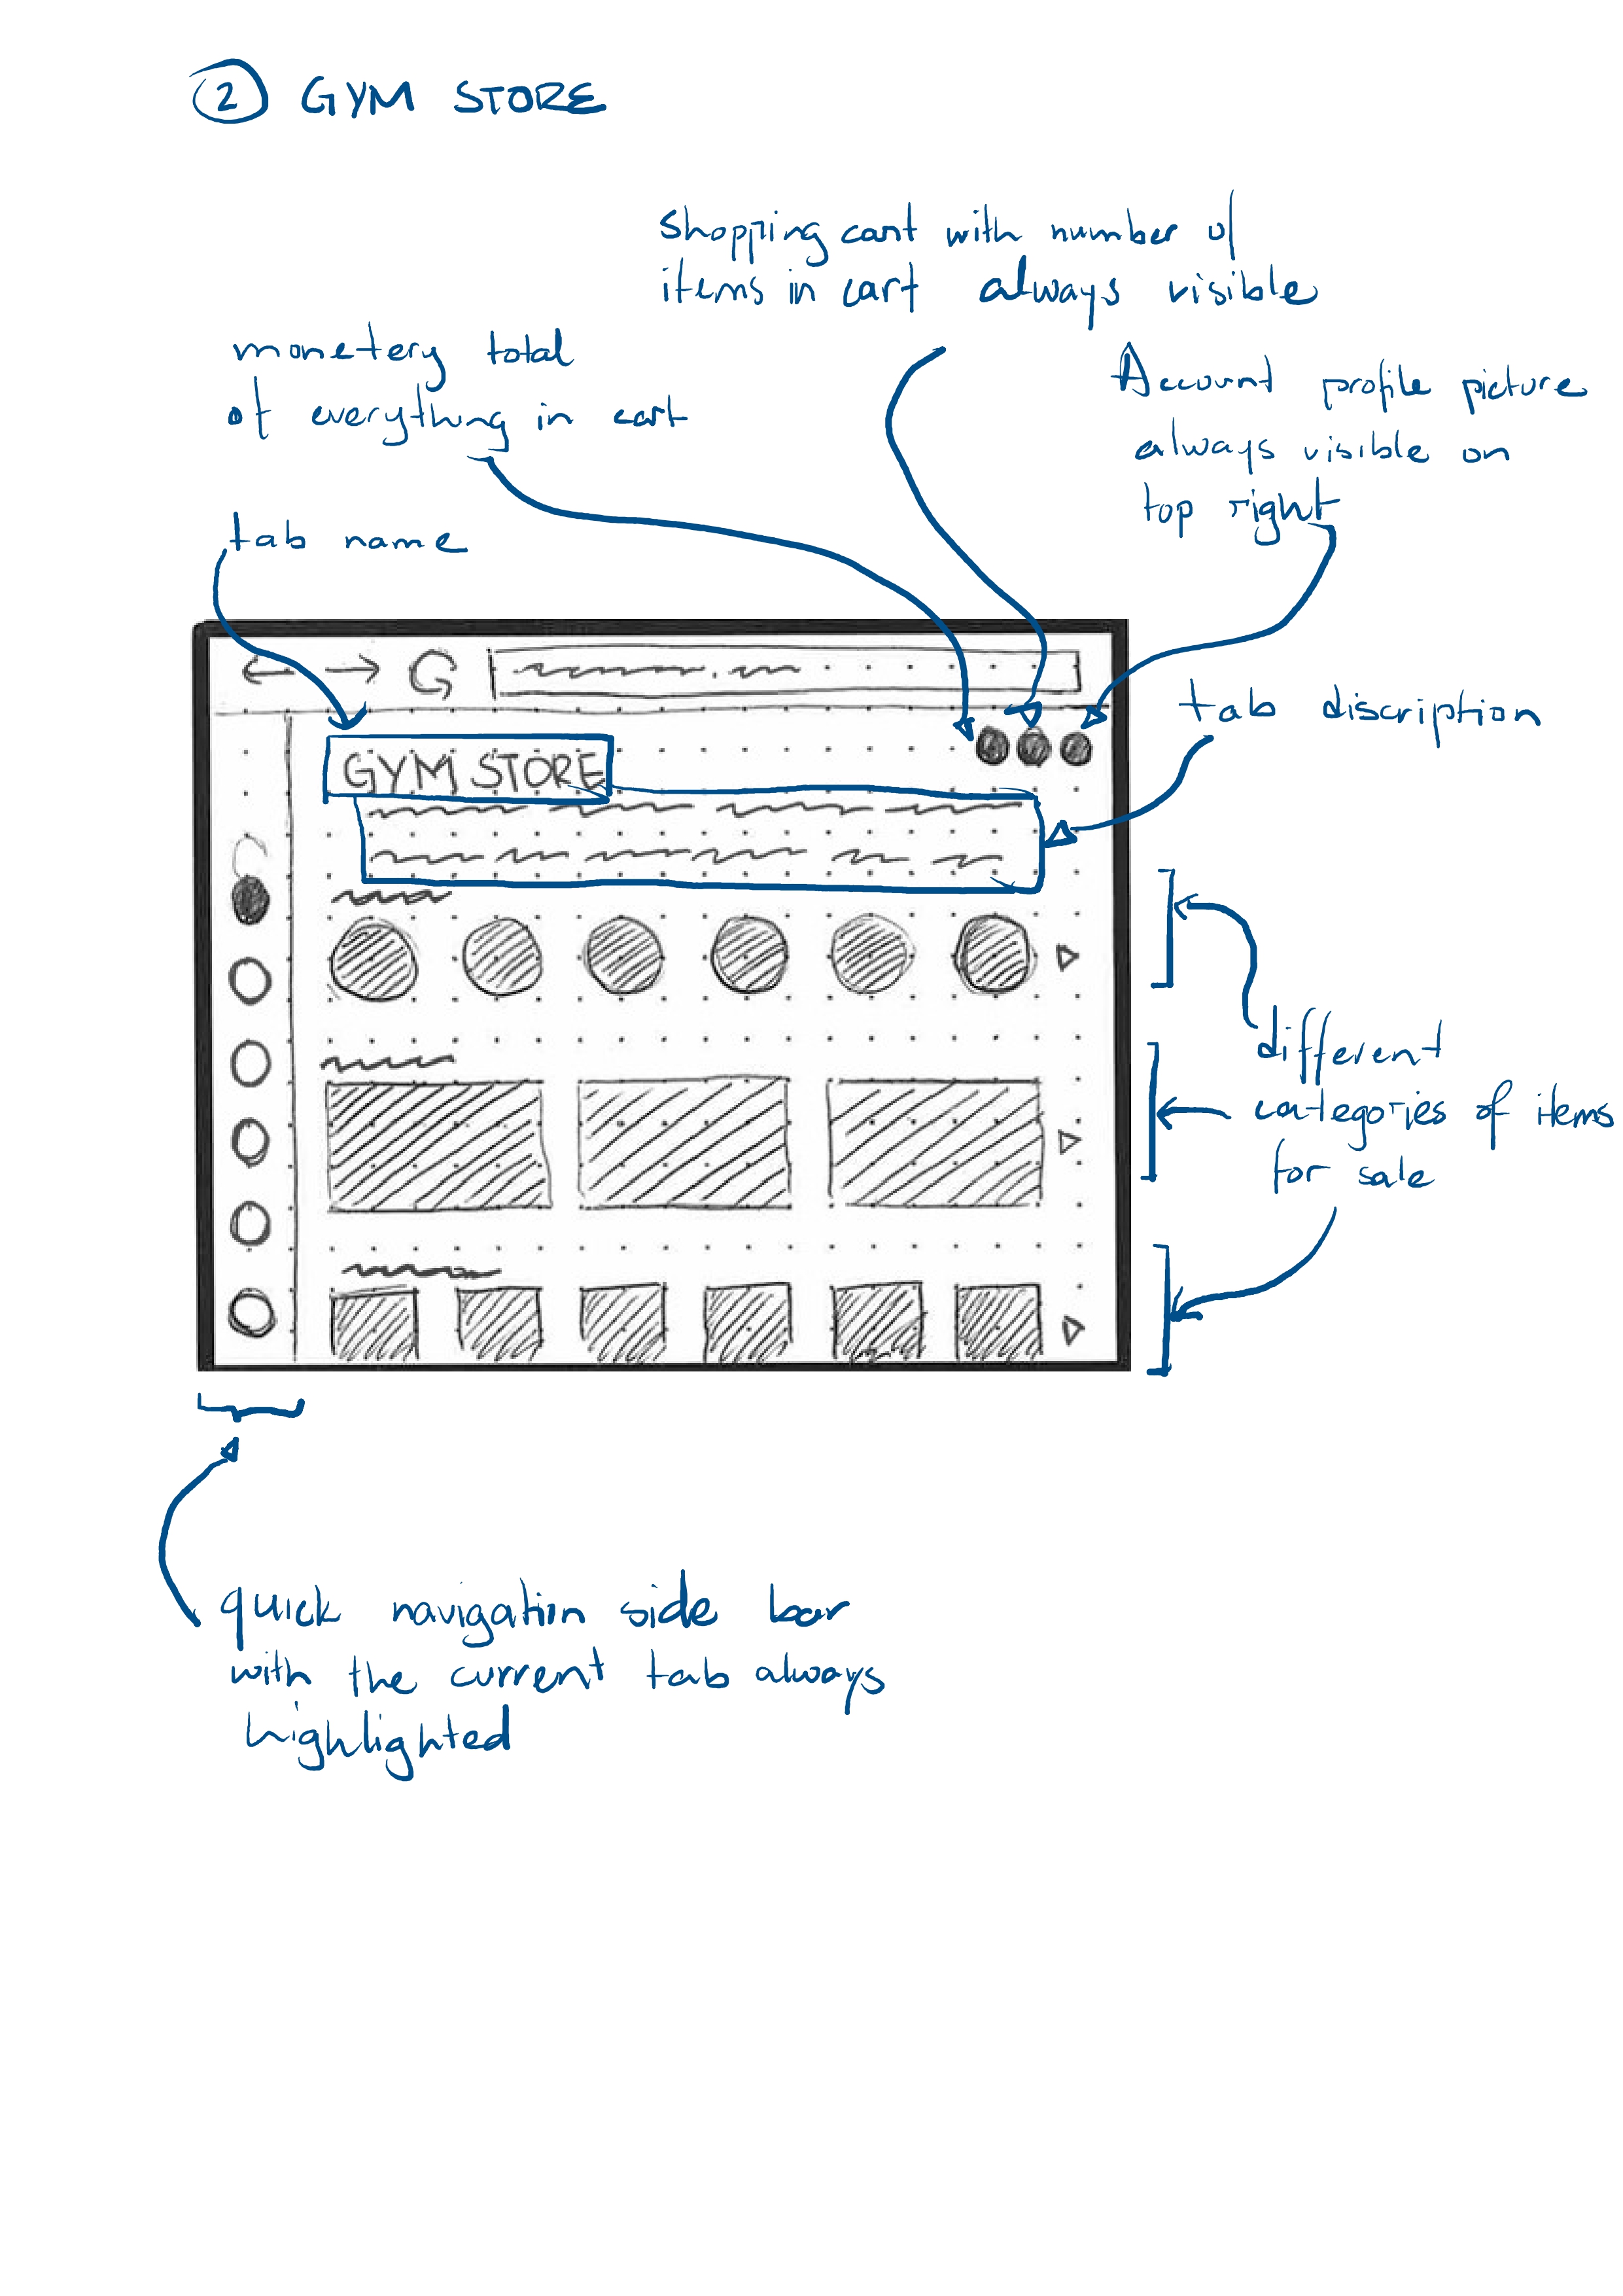 2 GYM STORE
shopping cart with number of
items in cart always visible
monetery total
of everything in cart
Account profile picture
always visible on
top right
tab name
tab discription
GYM STORE
different
categories of items
for sale
quick navigation side bar
with the current tab always
highlighted